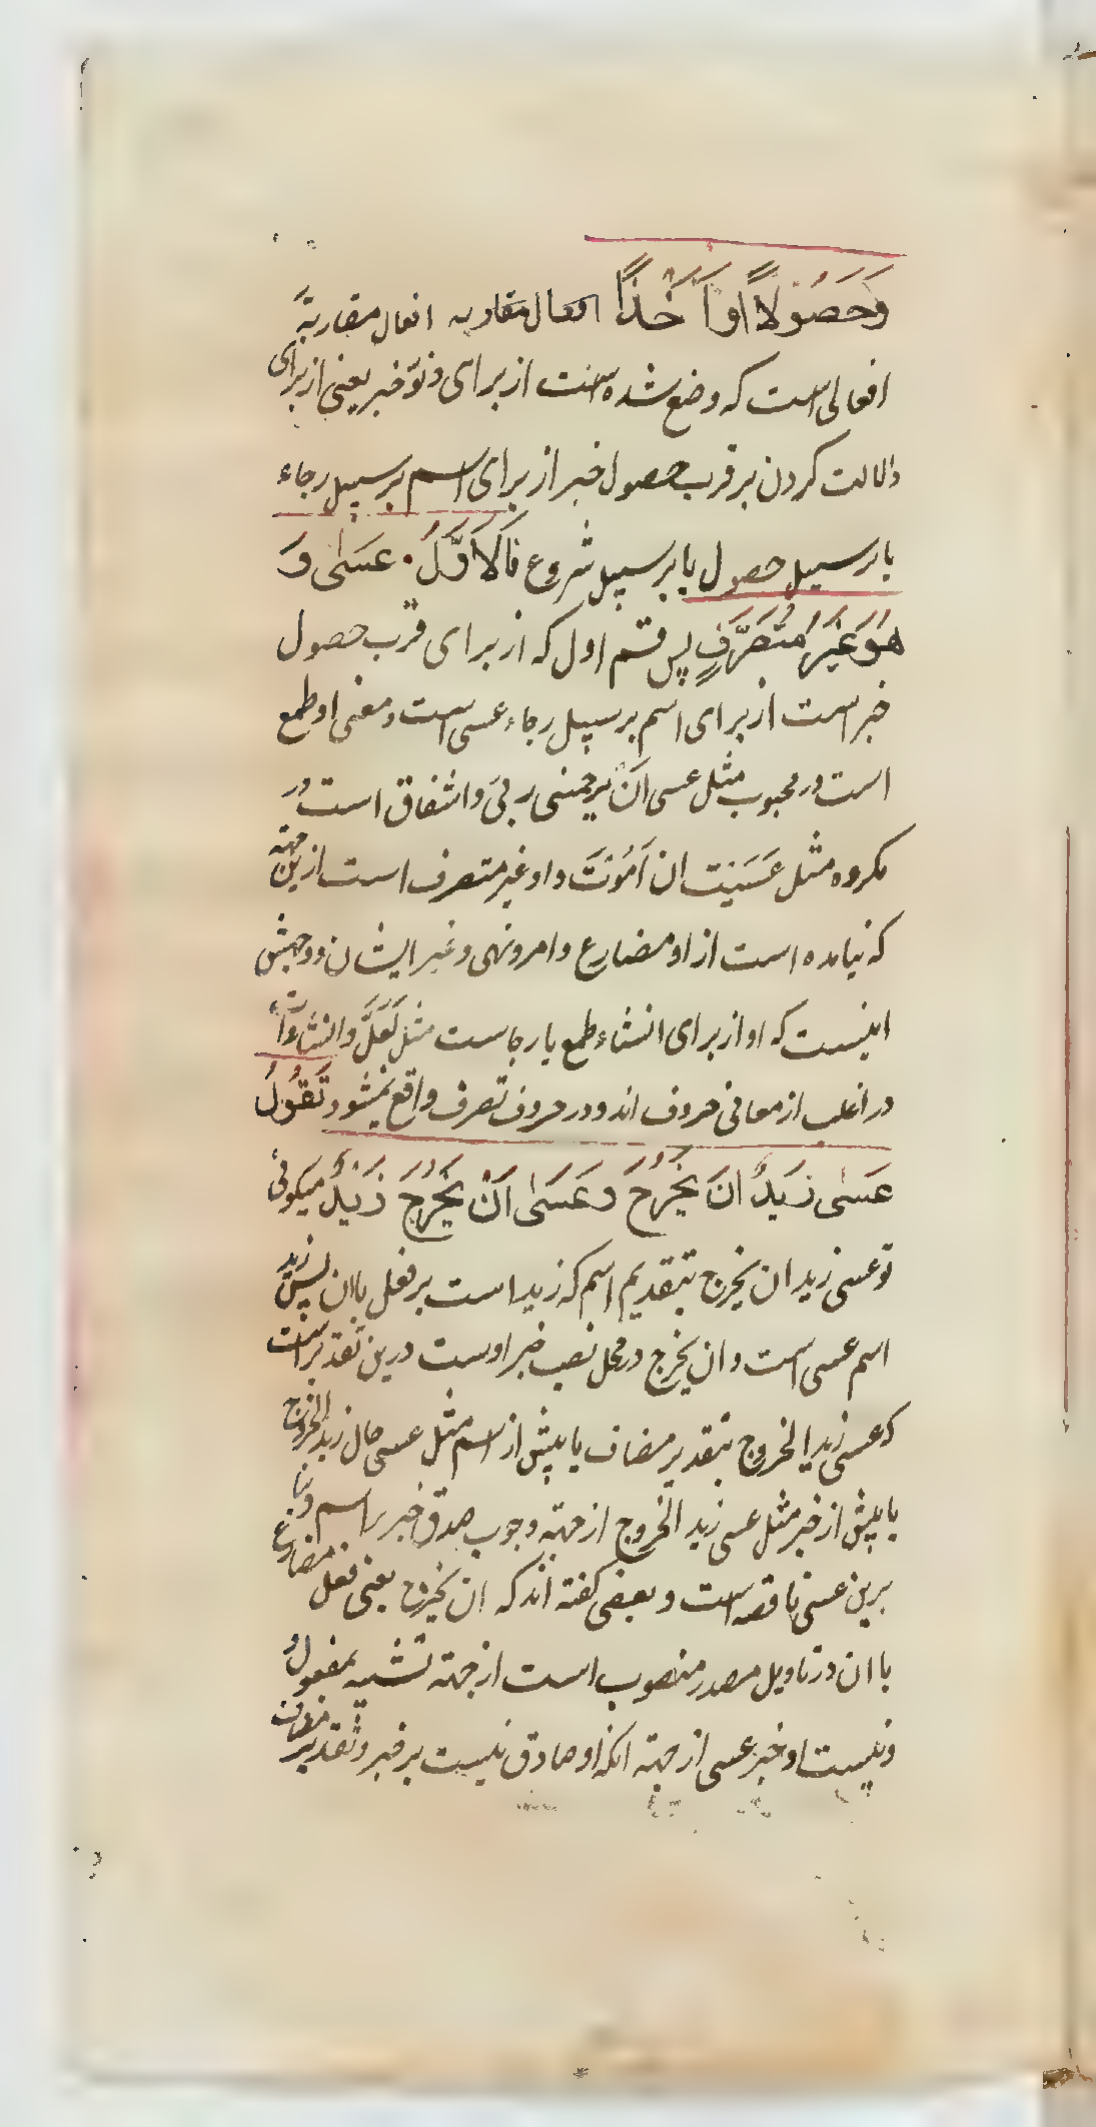 وَحَصُوْلاً اَوْ اَخْذًا افعال مقاربه افعال مقاربه
افعالی است که وضع شده است از برای دنو خبر یعنی از برای
دلالت کردن بر قرب حصول خبر از برای اسم بر سبیل رجاء
یا بر سبیل حصول یا بر سبیل شروع فَالْاَوَّلُ عَسَىٰ وَ
هُوَ غَيْرُ مُتَصَرِّفٍ پس قسم اول که از برای قرب حصول
خبر است از برای اسم بر سبیل رجاء عسی است و معنی او طمع
است در محبوب مثل عسی اَنْ یرحمنی ربی و اشفاق است در
مکروه مثل عَسَیْتَ ان اَمُوْتَ و او غیر متصرف است ازین جهته
که نیامده است از او مضارع و امر و نهی و غیر ایشان و وجهش
اینست که او از برای انشاء طمع یا رجاست مثل لَعَلَّ و انشاءات
در اغلب از معانی حروف اند و در حروف تصرف واقع نمیشود تَقُوْلُ
عَسىٰ زَيْدٌ اَنْ يَخْرُجَ وَعَسَىٰ اَنْ يَخْرُجَ زَيْدٌ میکوئی
تو عسی زید ان یخرج بتقدیم اسم که زید است بر فعل با ان پس زید
اسم عسی است و ان یخرج در محل نصب خبر اوست درین تقدیر است
که عسی زید الخروج بتقدیر مضاف یا پیش از اسم مثل عسی حال زید الخروج
یا پیش از خبر مثل عسی زید الخروج از جهته وجوب صدق خبر بر اسم و بنا
برین عسی ناقصه است و بعضی کفته اند که ان یخرج یعنی فعل مضارع
با ان در تاویل مصدر منصوب است از جهته تشبیه بمفعول
و نیست او خبر عسی از جهته انکه او صادق نیست بر خبر و تقدیر مضاف